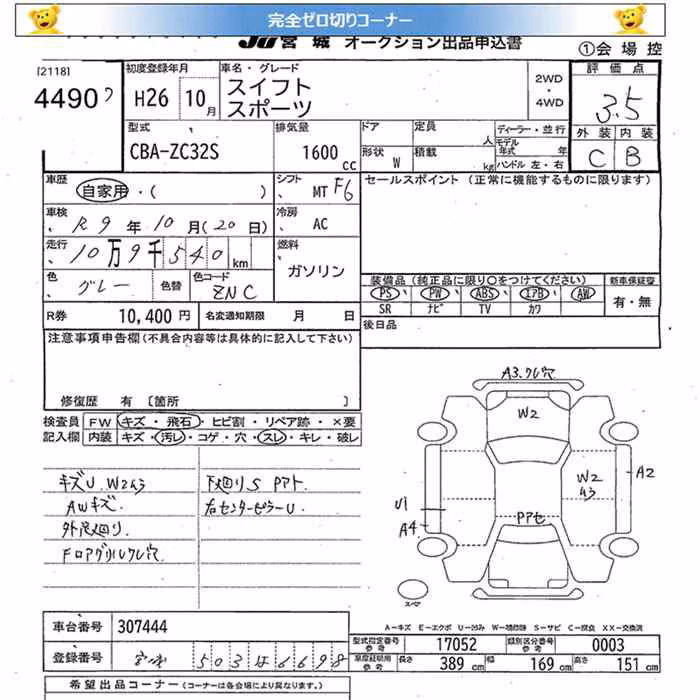 完全ゼロ切りコーナー
JU宮城 オークション出品申込書
①会場控
[2118]
4490
初度登録年月
H26 10月
車名・グレード
スイフト
スポーツ
2WD
・
4WD
評価点
3.5
外装 内装
C B
型式
CBA-ZC32S
排気量
1600
cc
ドア
定員
人
形状 W
積載
kg
ディーラー・並行
モデル年式 年
ハンドル 左・右
車歴
自家用・( )
シフト
MT F6
セールスポイント (正常に機能するものに限ります)
車検
R9年10月(20日)
冷房
AC
走行
10万9千540km
燃料
ガソリン
色
グレー
色替
色コード
ZNC
装備品(純正品に限り○をつけてください)
新車保証書
PS PW ABS エアB AW
SR ナビ TV カワ
有・無
R券 10,400円
名変通知期限 月 日
後日品
注意事項申告欄(不具合内容等は具体的に記入して下さい)
修復歴 有 〔箇所 〕
検査員 FW キズ・飛石・ヒビ割・リペア跡・×要
記入欄 内装 キズ・汚レ・コゲ・穴・スレ・キレ・破レ
キズU W2 43
AWキズ
外装廻り
Fロアグリルワレ穴
下廻りS Pアト
右センターピラーU
A3.ワレ穴
W2
W2
43
A2
U1
A4
Pアセ
スペア
A-キズ E-エクボ U-凹ミ W-補修跡 S-サビ C-腐食 XX-交換済
車台番号 307444
型式指定番号 参考 17052
類別区分番号 参考 0003
登録番号 宮城 503 6698
車庫証明用 参考 長さ 389 cm 幅 169 cm 高さ 151 cm
希望出品コーナー (コーナーは各会場により異なります。)